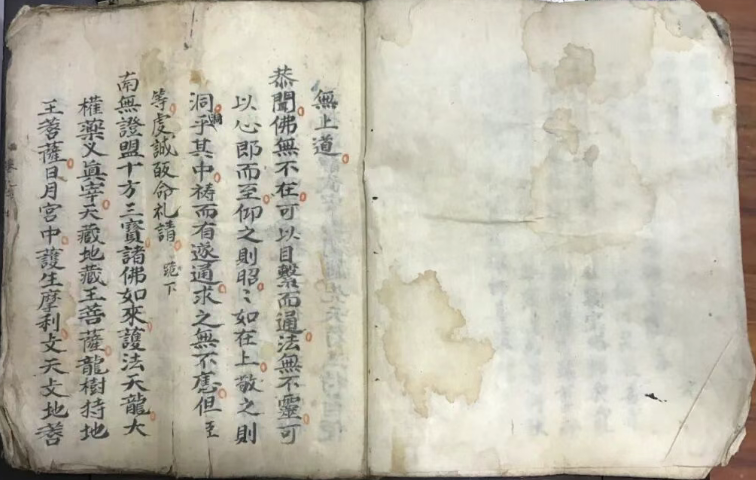 無上道
恭聞佛無不在可以目擊而通法無不靈可
以心即而至仰之則昭〻如在上敬之則
洞乎其中禱而有遂通求之無不應但至
等虔誠皈命礼請 跪下
南無證盟十方三寳諸佛如來護法天龍大
權藥叉真宰天藏地藏王菩薩龍樹持地
王菩薩日月宮中護生摩利攴天攴地菩